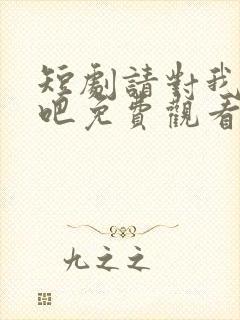 短劇請對我
吧免費觀看
九之之